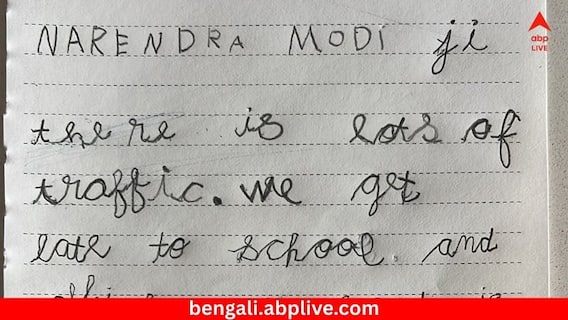 NARENDRA MODI ji
abp
LIVE
there is lots of
traffic. we get
late to school. and
bengali.abplive.com